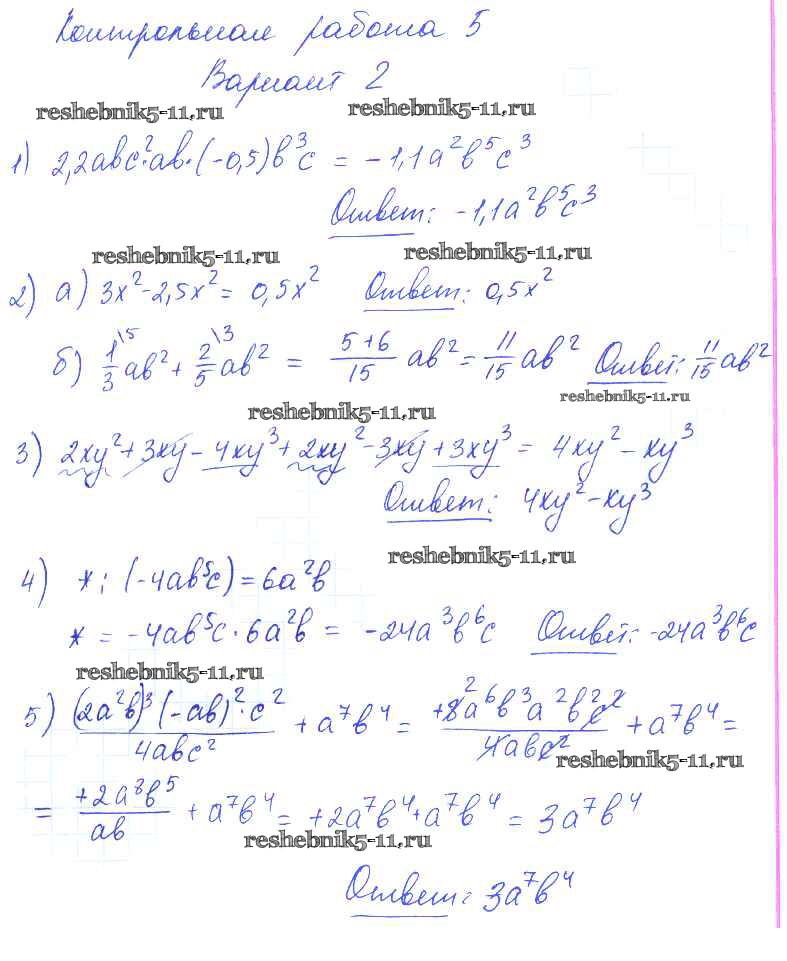 Контрольная работа 5
Вариант 2
reshebnik5-11.ru reshebnik5-11.ru
1) 2,2abc²·ab·(-0,5)b³c = -1,1a²b⁵c³
Ответ: -1,1a²b⁵c³
reshebnik5-11.ru reshebnik5-11.ru
2) а) 3x²-2,5x² = 0,5x² Ответ: 0,5x²
б) 1\5/3 ab² + 2\3/5 ab² = (5+6)/15 ab² = 11/15 ab² Ответ: 11/15 ab²
reshebnik5-11.ru reshebnik5-11.ru
3) 2xy²+3xy-4xy³+2xy²-3xy+3xy³ = 4xy²-xy³
Ответ: 4xy²-xy³
reshebnik5-11.ru
4) * : (-4ab⁵c) = 6a²b
* = -4ab⁵c·6a²b = -24a³b⁶c Ответ: -24a³b⁶c
reshebnik5-11.ru
5) (2a²b)³(-ab)²·c²/4abc² + a⁷b⁴ = +8²a⁶b³a²b²c²/4abc² + a⁷b⁴ =
reshebnik5-11.ru
= +2a⁸b⁵/ab + a⁷b⁴ = +2a⁷b⁴+a⁷b⁴ = 3a⁷b⁴
reshebnik5-11.ru
Ответ: 3a⁷b⁴